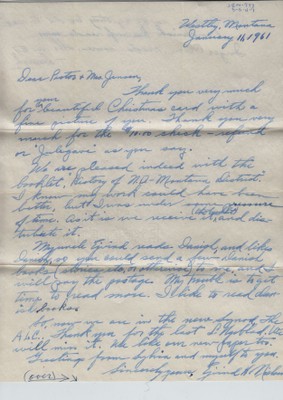 Westby, Montana
January 16, 1961
Dear Pastor & Mrs. Jensen,
Thank you very much
for your beautiful Christmas card with a
fine picture of you. Thank you very
much for the $11.00 check - refund
or "Julegave" as you say.
We are pleased indeed with the
booklet, History of N.D-Montana District.
I know your work could have been
better, but I was under some pressure
of time. As it is we receive it, and dis-
tribute it. (the booklet)
My uncle reads Danish, and likes
Danish, so you could send a few Danish
books (stories, etc, or otherwise) to me, and I
will pay the postage. My uncle is to get
time to read more. I like to read
books.
So, now we are in the new synod, the
A.L.C. Thank you for the last
will miss it. We like our new paper too.
Greetings from Sylvia and myself to you.
Sincerely yours,
(over)